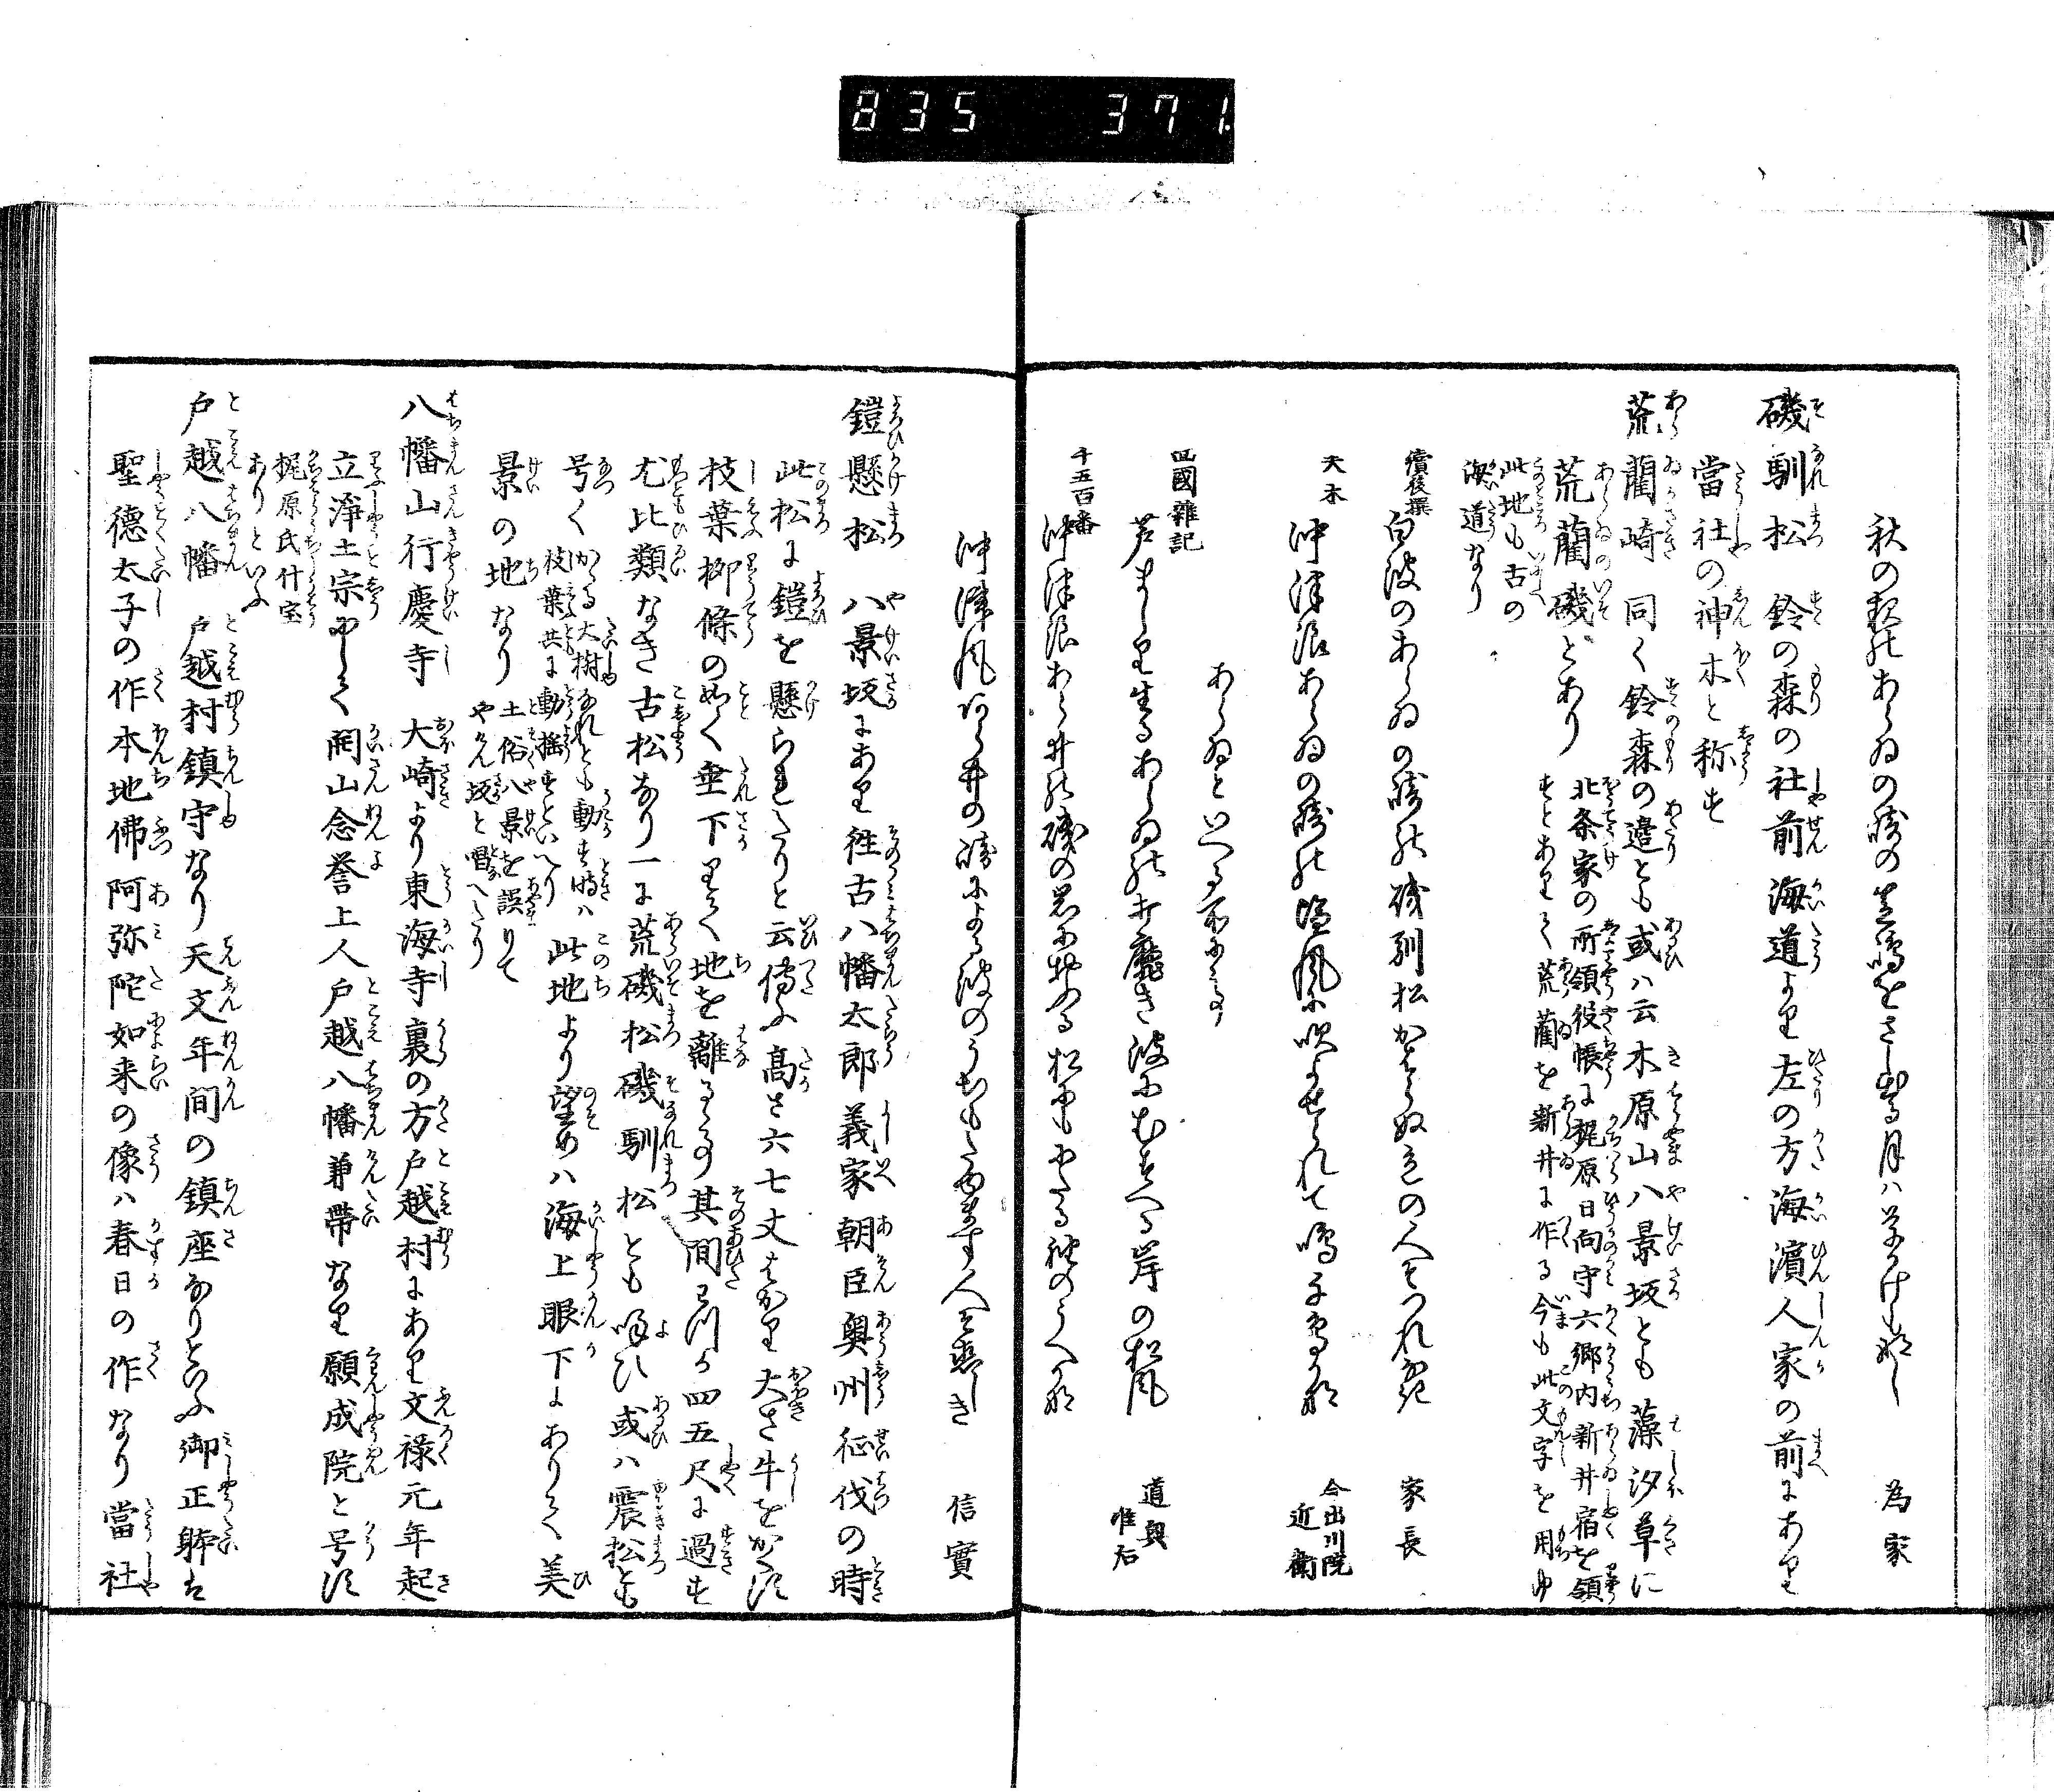 835 371
秋の夜はあらゐの崎の 月は
為家
磯馴松 鈴の森の社前海道より左の方海濱人家の前にあり
當社の神木と称す
荒藺崎 同く鈴森の邉とも或ハ云木原山八景坂とも藻汐草に
荒藺磯とあり
北条家の所領役帳に梶原日向守六郷内新井宿を領
すとありて荒藺を新井に作る今も此文字を用ゆ
此地も古の
海道なり
續後撰
白波のあらゐの崎の磯馴松かはらぬ色の人そつれなき
家長
夫木
沖津浪あらゐの崎の塩風に吹よせられて鳴千鳥かな
今出川院
近衛
四國雜記
あらゐといへる所にて
芦ましり生るあらゐの打靡き波にむせへる岸の松風
道興
准后
千五百番
沖津浪あら井の磯の岩に松
沖津風あら井の崎による波の 人そ恋しき
信實
鎧懸松 八景坂にあり往古八幡太郎義家朝臣奥州征伐の時
此松に鎧を懸られたりと云傳ふ高さ六七丈はかり大さ牛をかくす
枝葉柳條の如く垂下りて地を離るゝ事其間わつか四五尺に過す
尤比類なき古松なり一に荒磯松磯馴松とも呼ひ或ハ震松とも
号く
かゝる大樹なれとも動す時ハ
枝葉共に動揺すといへり
此地より望めハ海上眼下にありて美
景の地なり
土俗八景を誤りて
やけん坂と唱へたり
八幡山行慶寺 大崎より東海寺裏の方戸越村にあり文禄元年起
立浄土宗にして開山念誉上人戸越八幡兼帯なり願成院と号す
梶原氏什宝
ありといふ
戸越八幡 戸越村鎮守なり天文年間の鎮座なりといふ御正躰は
聖徳太子の作本地佛阿弥陀如来の像ハ春日の作なり當社